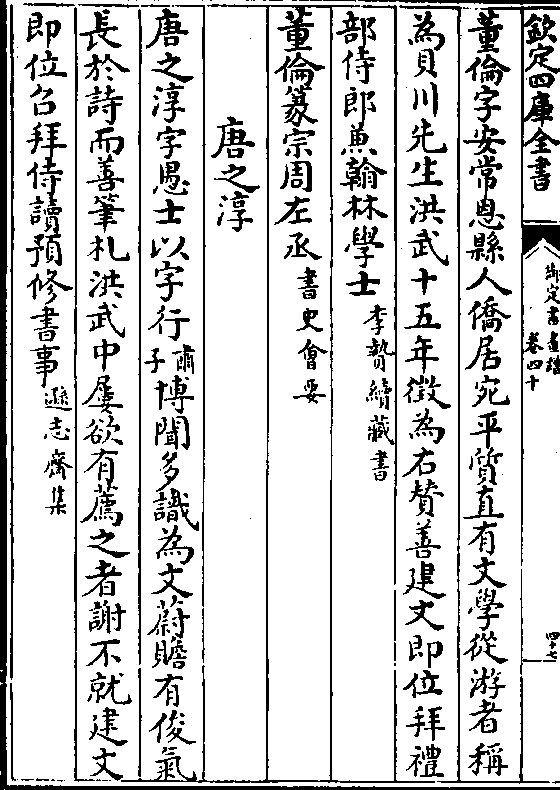 欽定四庫全書
御定書畫譜
卷四十
四十七
董倫字安常恩縣人僑居宛平質直有文學從游者稱
為貝川先生洪武十五年徵為右賛善建文即位拜禮
部侍郎兼翰林學士李贄續藏書
董倫篆宗周左丞書史會要
唐之淳
唐之淳字愚士以字行肅子博聞多識為文蔚贍有俊氣
長於詩而善筆札洪武中屢欲有薦之者謝不就建文
即位召拜侍讀預修書事遜志齋集